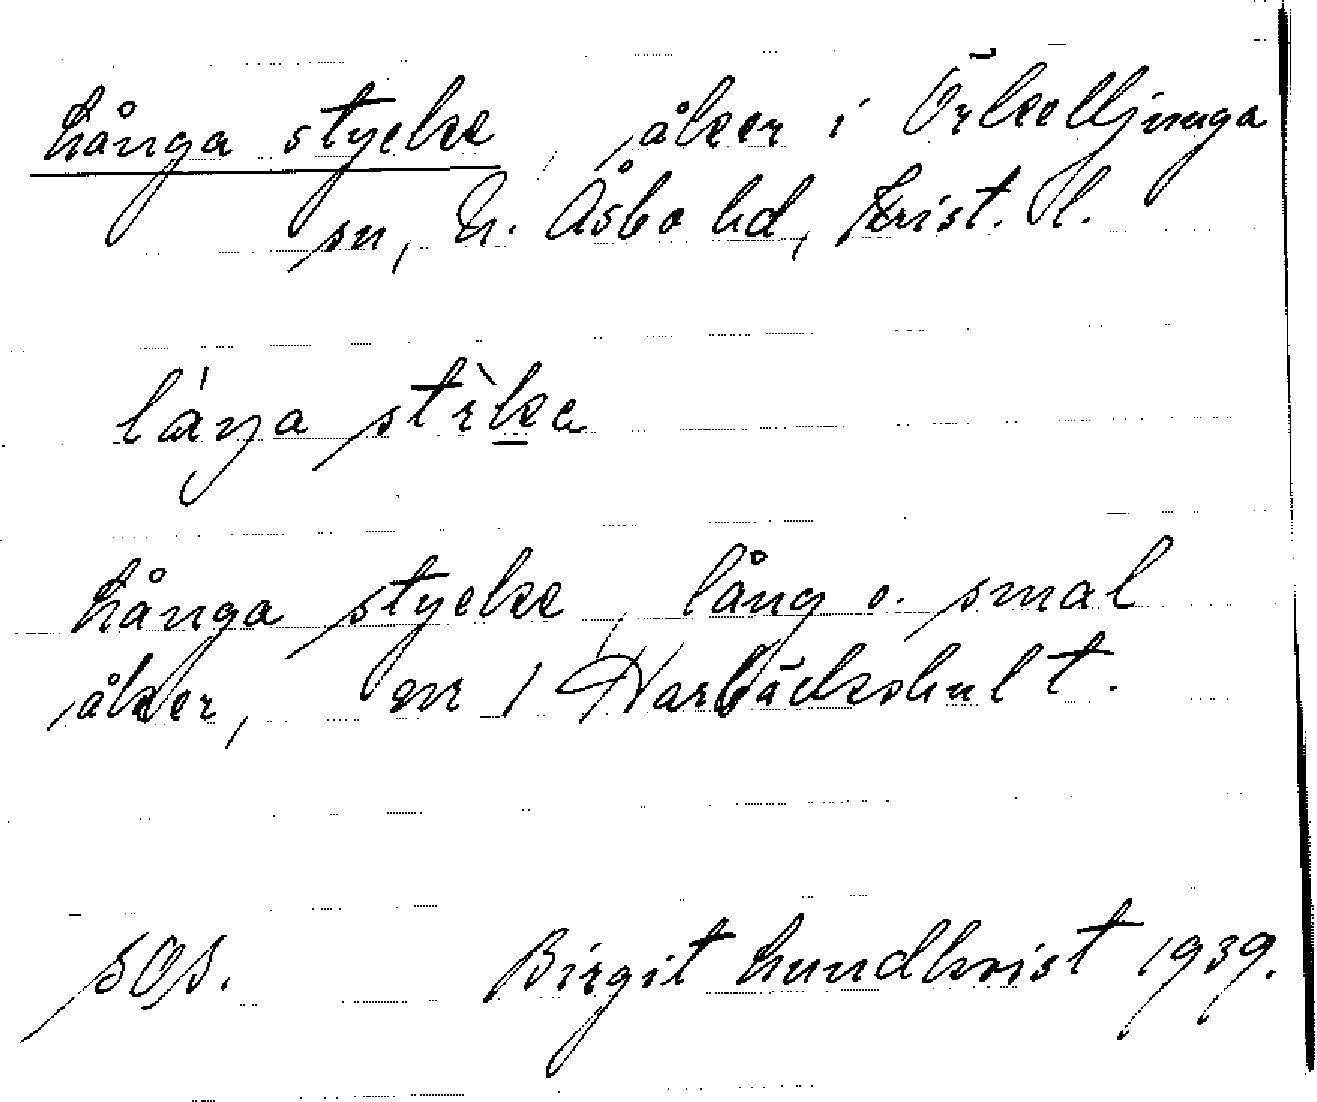 Långa stycke, åker i Örkelljunga
sn, N. Åsbo hd, Krist. l.
låŋa stỳke
Långa stycke, lång o. smal
åker, nr 1 Harbäckshult.
sOs. Birgit Lundkvist 1939.